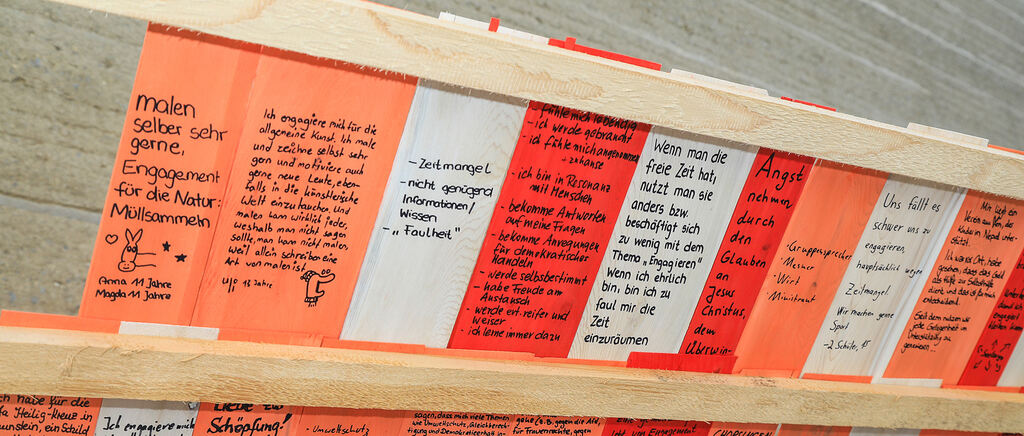 malen
selber sehr
gerne,
Engagement
für die Natur:
Müllsammeln
Anna 11 Jahre
Magda 11 Jahre
Ich engagiere mich für die
allgemeine Kunst. Ich male
und zeichne selbst sehr
gern und motiviere auch
gerne neue Leute, eben-
falls in die künstlerische
Welt einzutauchen. Und
malen kann wirklich jeder,
weshalb man nicht sagen
sollte, man kann nicht malen,
weil allein schreiben eine
Art von malen ist.
Jahre
- Zeitmangel
- nicht genügend
Informationen/
Wissen
- „Faulheit"
- fühle mich lebendig
- ich werde gebraucht
- ich fühle mich angenommen
- zuhause
- ich bin in Resonanz
mit Menschen
- bekomme Antworten
auf meine Fragen
- bekomme Anregungen
für demokratischer
handeln
- werde selbstbestimmt
- habe Freude am
Austausch
- werde ert reifer und
weiser
- ich lerne immer dazu
Wenn man die
freie Zeit hat,
nutzt man sie
anders bzw.
beschäftigt sich
zu wenig mit dem
Thema „Engagieren"
Wenn ich ehrlich
bin, bin ich zu
faul mir die
Zeit
einzuräumen
Angst
nehmen,
durch
den
Glauben
an
Jesus
Christus,
dem
Überwin-
· Gruppensprecher
· Mesner
· Wirt
· Ministrant
Uns fällt es
schwer uns zu
engagieren,
hauptsächlich wegen
Zeitmangel
Wir machen gerne
Sport
- 2 Schüler, 15
Verein am Ort, der
Kinder in Nepal unter-
stützt.
Ich war vor Ort, habe
gesehen, dass das Geld
als Hilfe zur Selbsthilfe
dient, und das ist für mich
entscheidend.
Seit dem nutzen wir
jede Gelegenheit um
Unterstützung zu
gewinnen...
Ich habe für die
Heilig-Kreuz in
ein Schild
Ich engagiere mich
Liebe zur
Schöpfung!
- Umweltschutz
sagen, dass mich viele Themen
wie Umweltschutz, Gleichberech-
tigung und Demokratieerhalt
für Frauenrechte, gegen